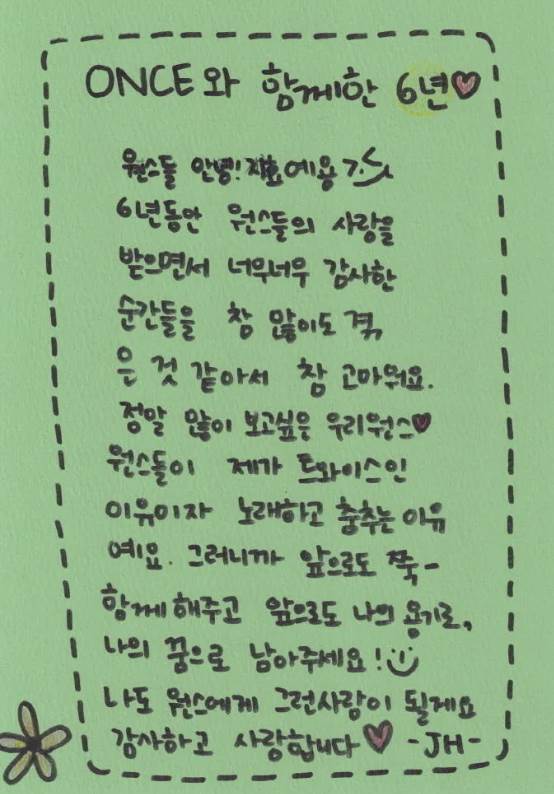 ONCE와 함께한 6년♥
원스들 안녕! 지효예용 ㅋㅅㅋ
6년동안 원스들의 사랑을
받으면서 너무너무 감사한
순간들을 참 많이도 겪
은 것 같아서 참 고마워요.
정말 많이 보고싶은 우리원스♥
원스들이 제가 트와이스인
이유이자 노래하고 춤추는 이유
예요. 그러니까 앞으로도 쭉-
함께 해주고 앞으로도 나의 용기로,
나의 꿈으로 남아주세요! :)
나도 원스에게 그런사랑이 될게요
감사하고 사랑합니다♥ -JH-